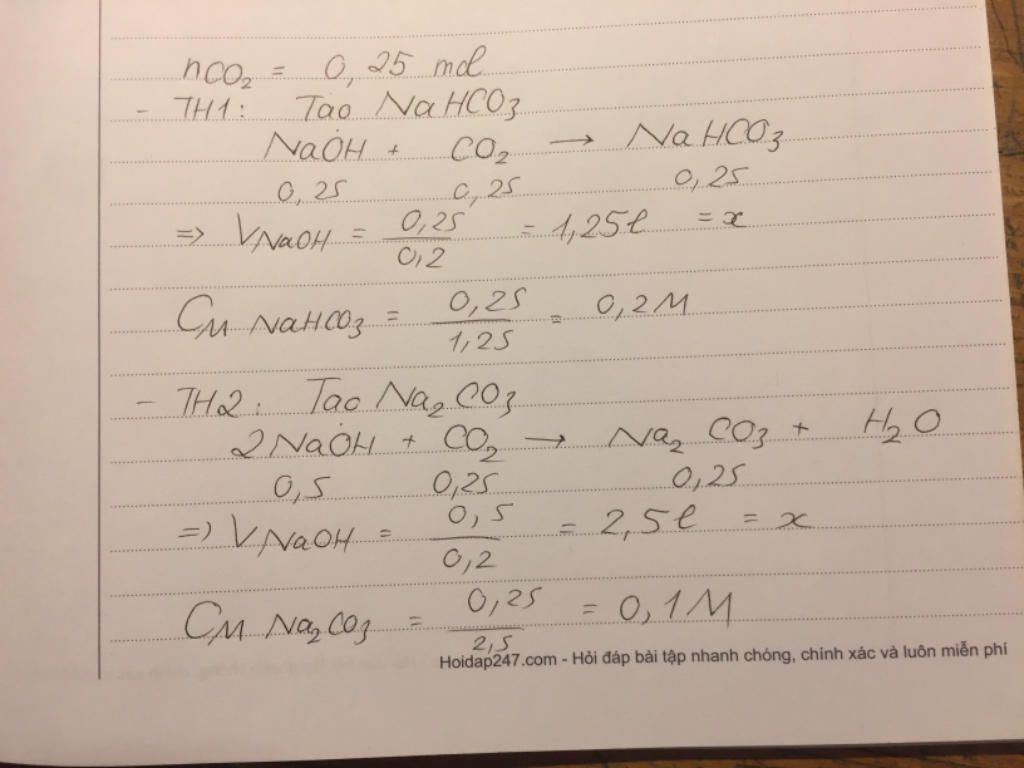 nCO₂ = 0,25 mol
- TH1: Tạo NaHCO₃
NaOH + CO₂ → NaHCO₃
0,25 0,25 0,25
=> VNaOH = 0,25/0,2 = 1,25l = x
CM NaHCO₃ = 0,25/1,25 = 0,2M
- TH2: Tạo Na₂CO₃
2NaOH + CO₂ → Na₂CO₃ + H₂O
0,5 0,25 0,25
=> VNaOH = 0,5/0,2 = 2,5l = x
CM Na₂CO₃ = 0,25/2,5 = 0,1M
Hoidap247.com - Hỏi đáp bài tập nhanh chóng, chính xác và luôn miễn phí